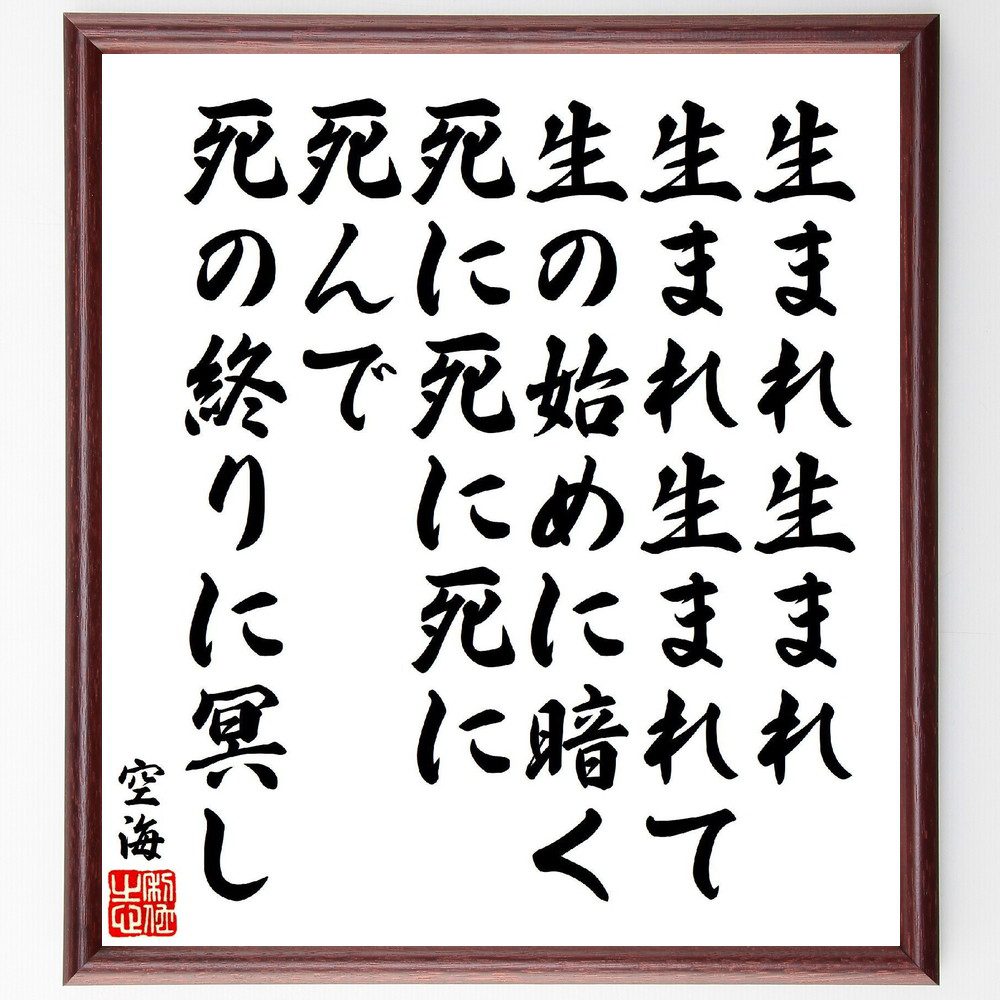 生まれ生まれ
生まれ生まれて
生の始めに暗く
死に死に死に
死んで
死の終りに冥し
空海